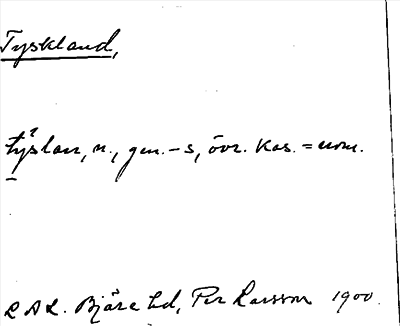 Tyskland,
týslan, n., gen. -s, övr. kas. = nom.
L A L. Bjäre hd, Per Larsson 1900.